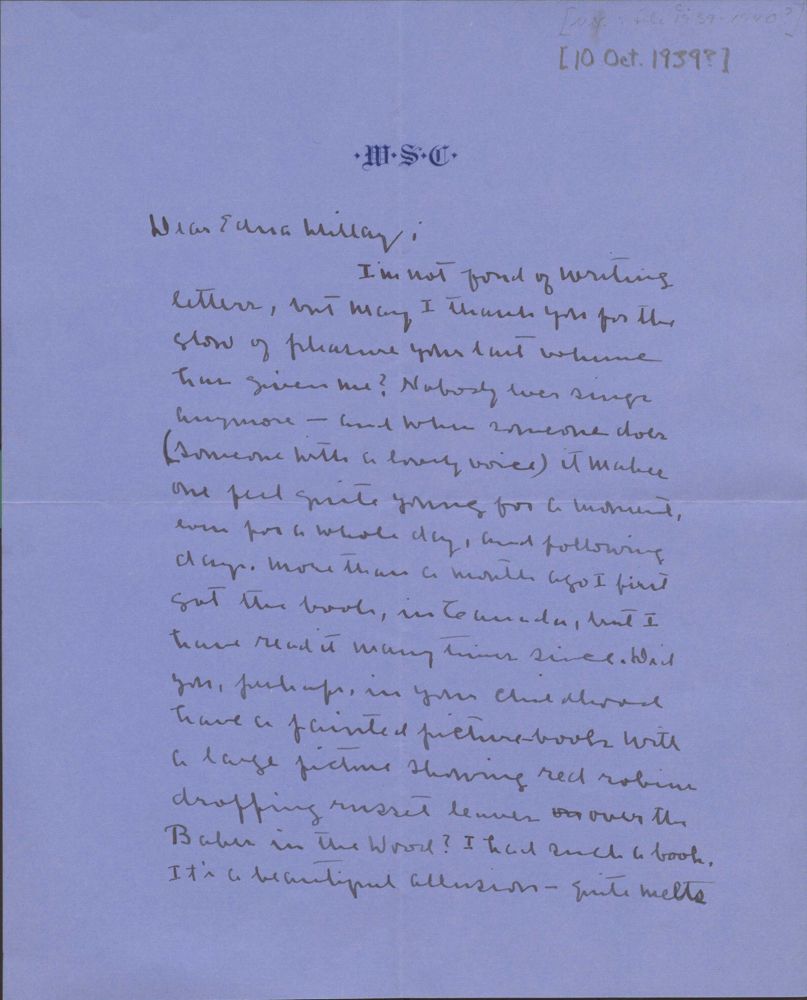 [10 Oct. 1939?]
·W·S·C·
Dear Edna Millay;
I'm not fond of writing
letters, but may I thank you for the
glow of pleasure your last volume
has given me? Nobody ever sings
anymore – and when someone does
(someone with a lovely voice) it makes
one feel quite young for a moment,
even for a whole day, and following
days. More than a month ago I first
got the book, in Canada, but I
have read it many times since. Did
you, perhaps, in your childhood
have a painted picture-book with
a large picture showing red robins
dropping russet leaves on over the
Babes in the Wood? I had such a book.
It's a beautiful allusion – quite melts